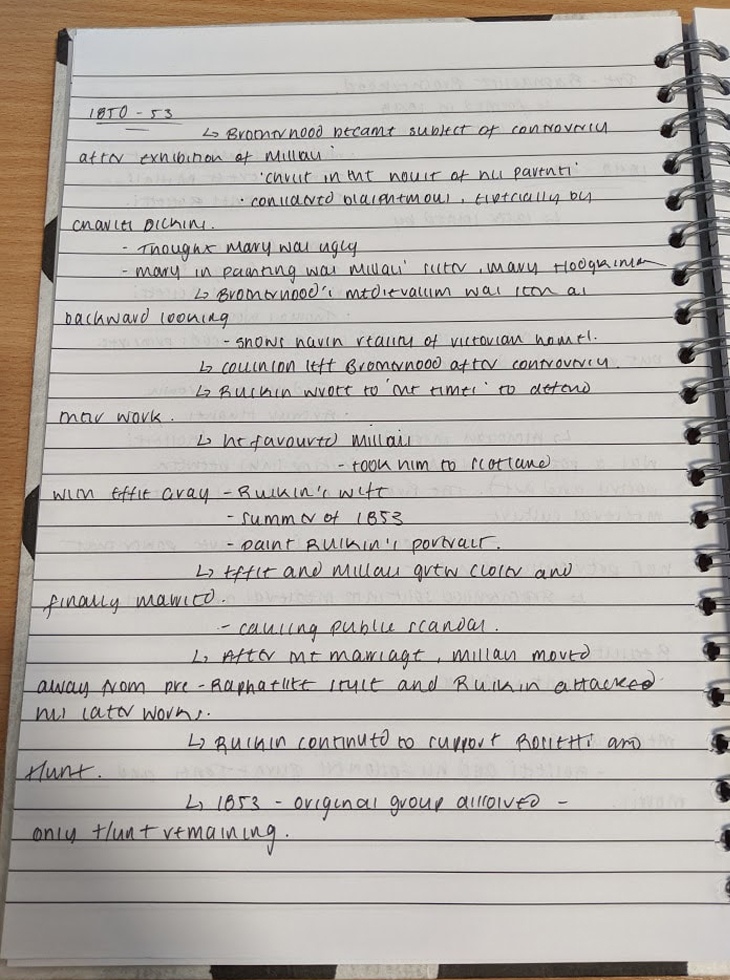 1850 - 53
↳ Brotherhood became subject of controversy
after exhibition of Millais'
'Christ in the house of his parents'
· considered blasphemous, especially by
Charles Dickens.
- Thought Mary was ugly
- Mary in painting was Millais' sister, Mary Hodgkinson
↳ Brotherhood's medievalism was seen as
backward looking
- shows harsh reality of Victorian homes.
↳ Collinson left Brotherhood after controversy.
↳ Ruskin wrote to 'the times' to defend
their work.
↳ he favoured Millais
- took him to Scotland
with Effie Gray - Ruskin's wife
- summer of 1853
- paint Ruskin's portrait.
↳ Effie and Millais grew closer and
finally married.
- causing public scandal.
↳ After the marriage, Millais moved
away from pre-Raphaelite style and Ruskin attacked
his later works.
↳ Ruskin continued to support Rossetti and
Hunt.
↳ 1853 - original group dissolved -
only Hunt remaining.